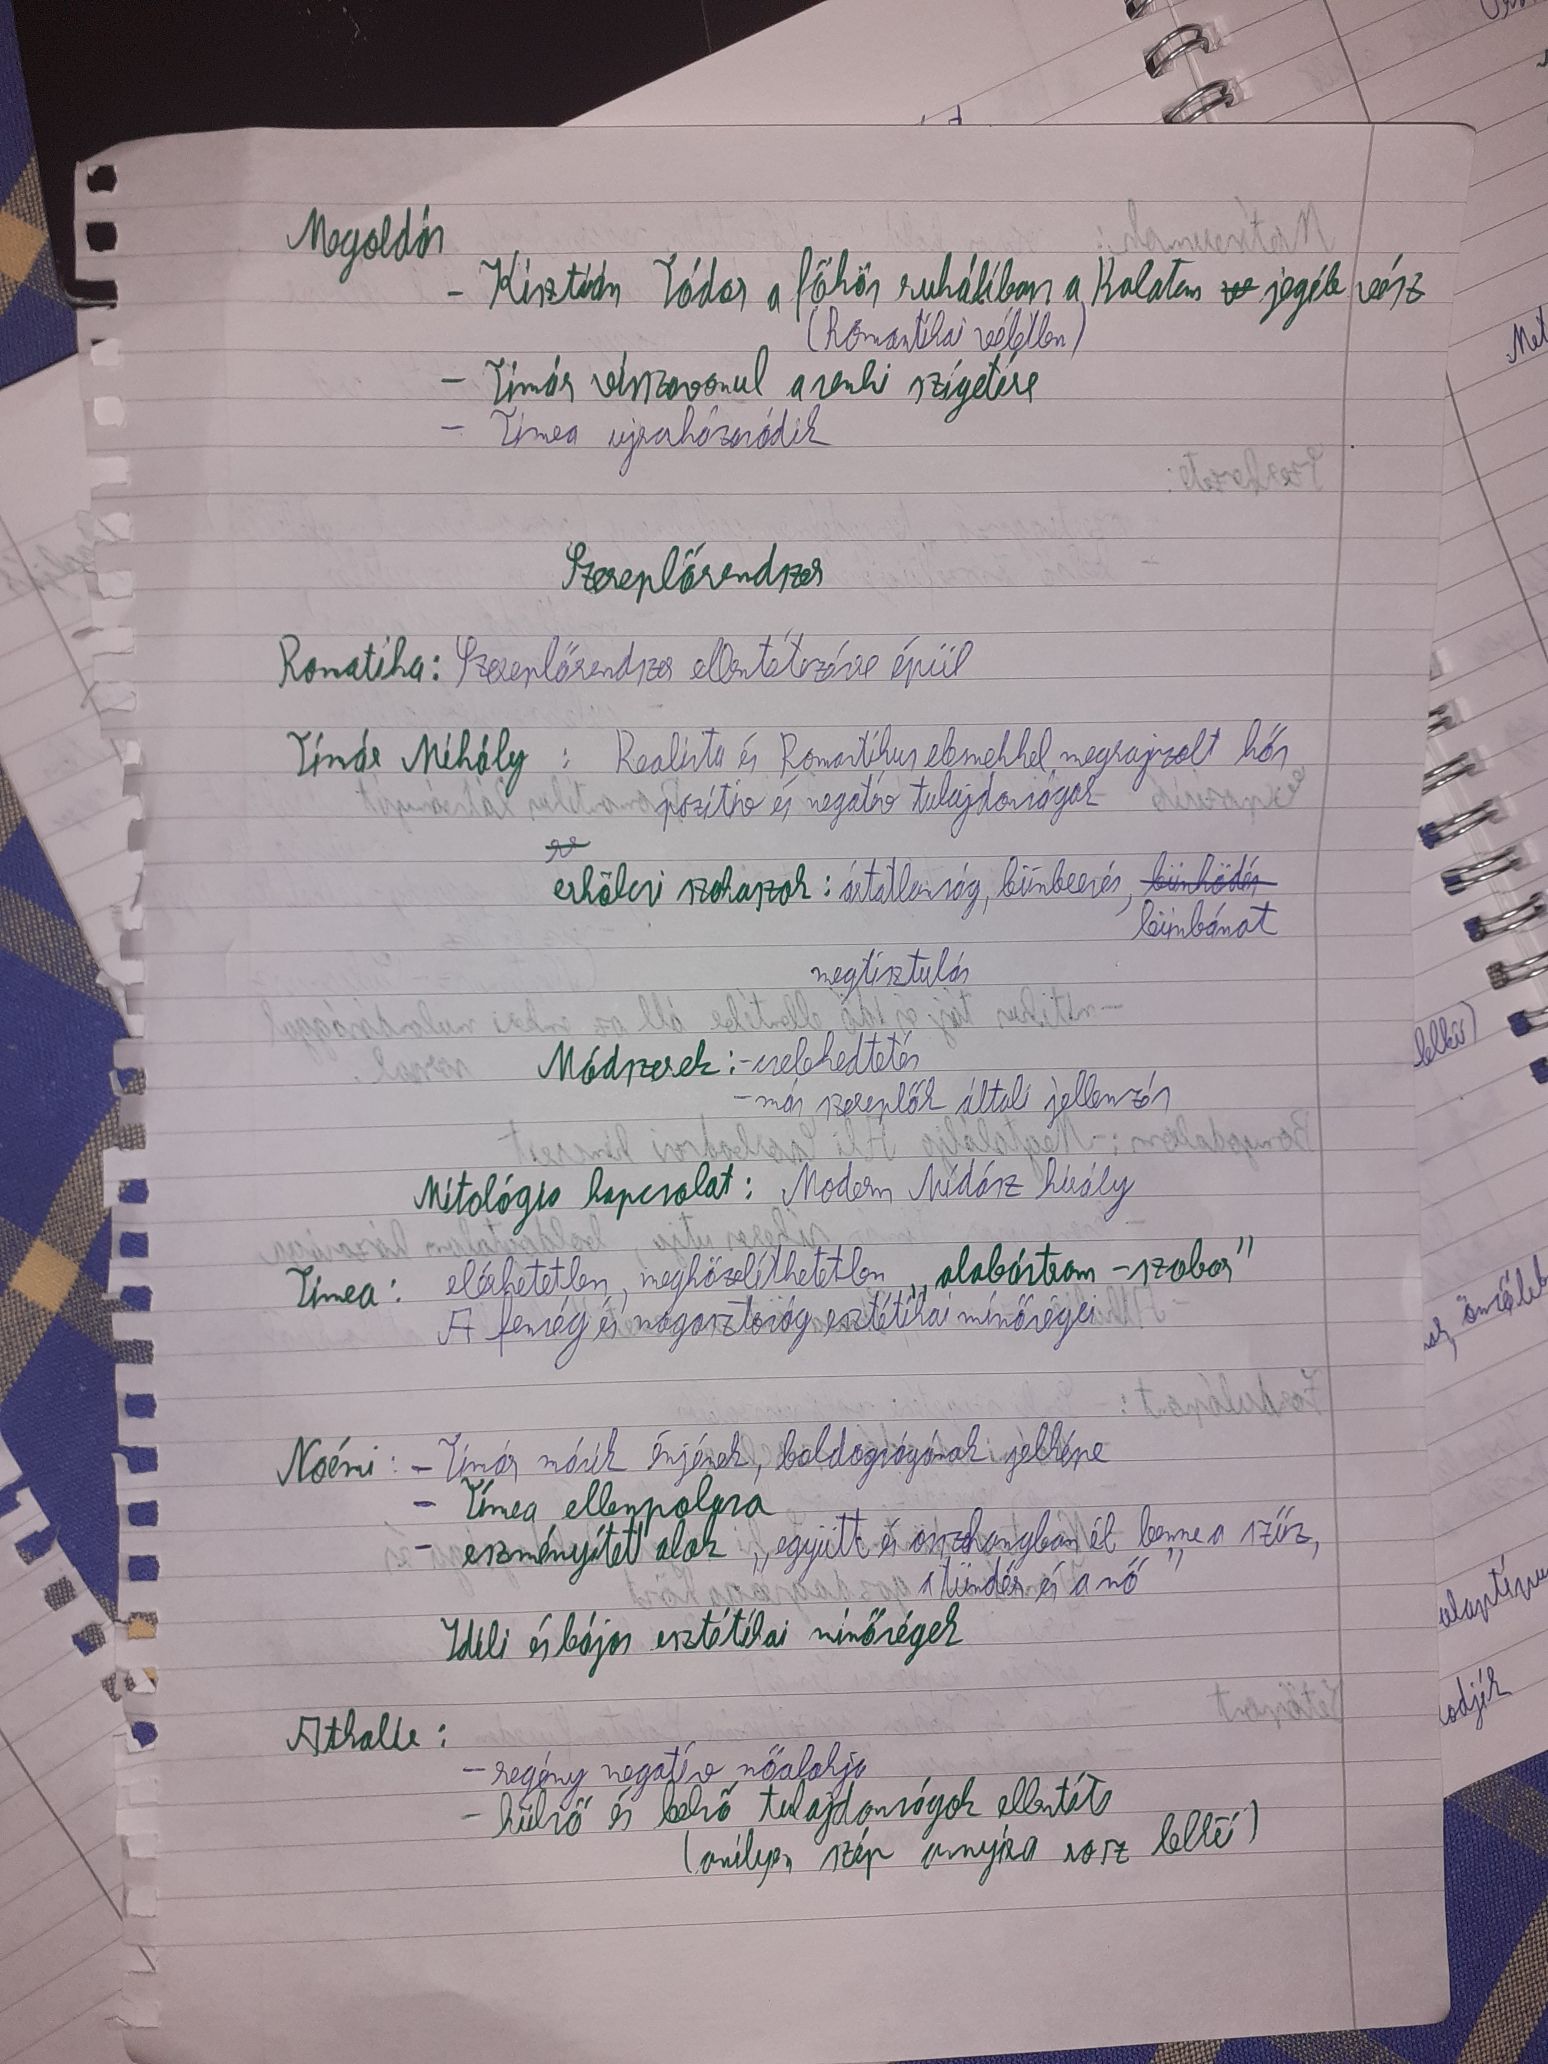 Megoldás
- Krisztián Tódor a főhős ruháiban a Balaton jegébe vész
(Romantikai véletlen)
- Tímár visszavonul a senki szigetére
- Tímea ujraházasódik
Szereplőrendszer
Romatika: Szereplőrendszer ellentétezésre épül
Tímár Mihály : Realista és Romantikus elemekkel megrajzolt hős
pozitív és negatív tulajdonságok
erkölcsi szakaszok: ártatlanság, bűnbeesés, bűnhődés
bűnbánat
megtisztulás
Módszerek: - cselekedtetés
- más szereplők általi jellemzés
Mitológia kapcsolat: Modern Midász király
Tímea: elérhetetlen, megközelíthetetlen „alabástrom - szobor"
A fenség és magasztosság esztétikai minőségei
Noémi: - Tímár másik énjének, boldogságának jelképe
- Tímea ellenpolusa
- eszményített alak „együtt és összhangban él benne a szűz,
a tündér és a nő"
Idilli és bájos esztétikai minőségek
Athalie:
- regény negatív nőalakja
- külső és belső tulajdonságok ellentéte
(amilyen szép annyira rosz lelkű)
lelkis)
alaptípus
odjék